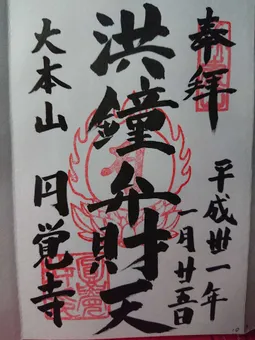 奉拝
平成卅一年
一月廿五日
洪鐘弁財天
大本山 円覚寺